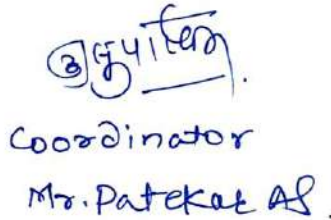 Coordinator
Mr. Patekar AS.